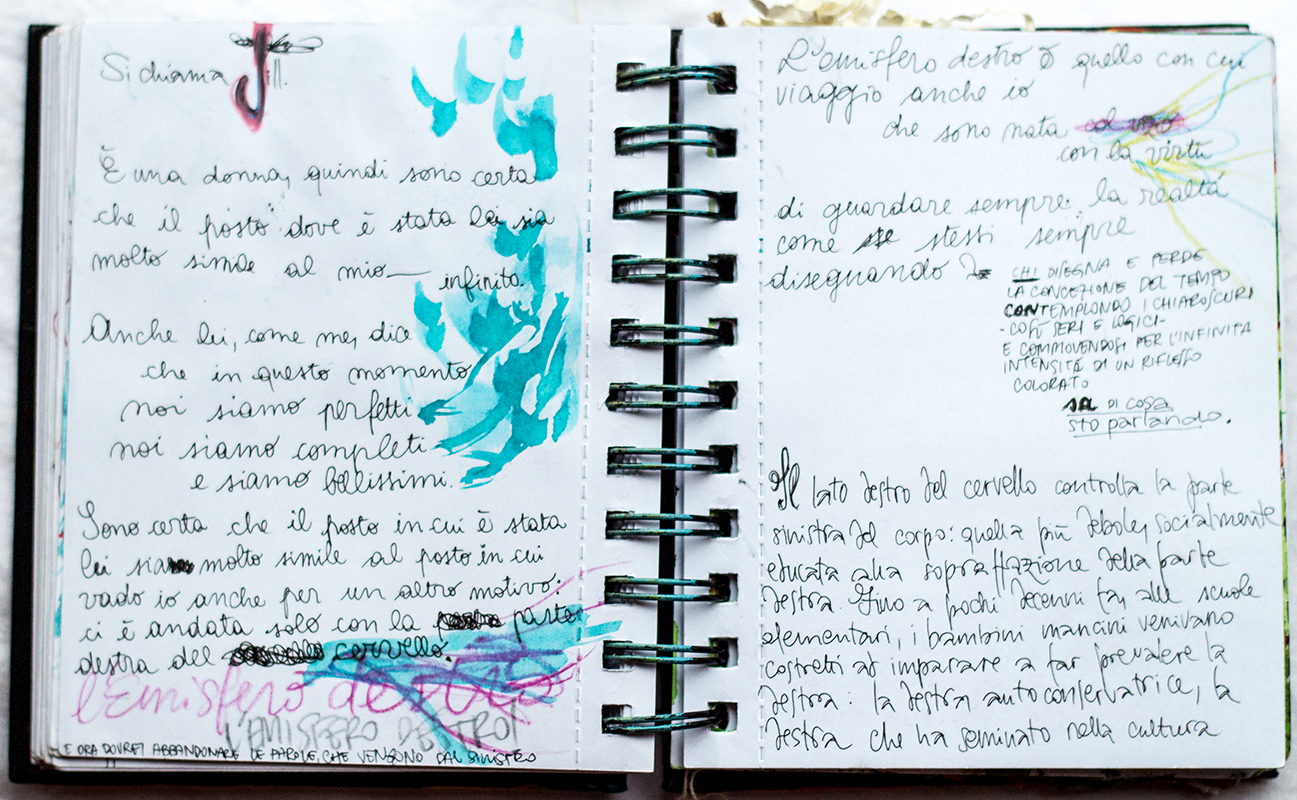 Si chiama Jill.
È una donna, quindi sono certa
che il posto dove è stata lei sia
molto simile al mio—
infinito.
Anche lei, come me, dice
che in questo momento
noi siamo perfetti
noi siamo completi
e siamo bellissimi.
Sono certa che il posto in cui è stata
lei sia molto simile al posto in cui
vado io anche per un altro motivo:
ci è andata solo con la parte
destra del cervello.
l'Emisfero destro
L'EMISFERO DESTRO!
E ORA DOVREI ABBANDONARE LE PAROLE, CHE VENGONO DAL SINISTRO
L'emisfero destro è quello con cui
viaggio anche io
che sono nata col vizio
con la virtù
di guardare sempre la realtà
come se stessi sempre
disegnando
CHI DISEGNA E PERDE
LA CONCEZIONE DEL TEMPO
CONTEMPLANDO I CHIAROSCURI
- COSÌ SERI E LOGICI -
E COMMOVENDOSI PER L'INFINITA
INTENSITÀ DI UN RIFLESSO
COLORATO
SA DI COSA
sto parlando.
Il lato destro del cervello controlla la parte
sinistra del corpo: quella più debole, socialmente
educata alla sopraffazione della parte
destra. Fino a pochi decenni fa, alle scuole
elementari, i bambini mancini venivano
costretti ad imparare a far prevalere la
destra. la destra autoconservatrice, la
destra che ha seminato nella cultura